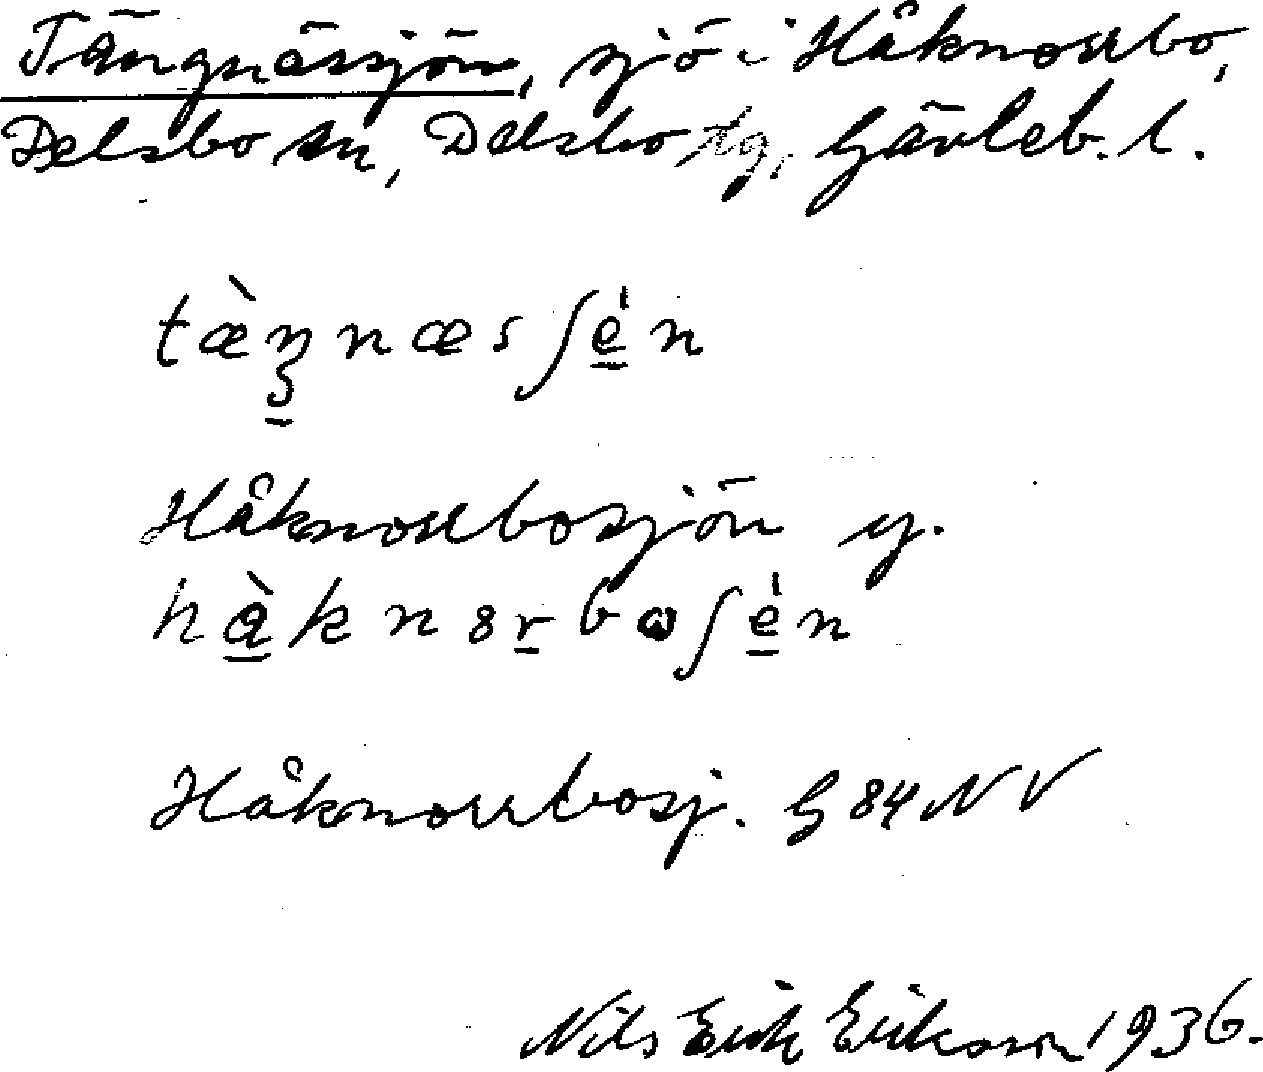 Tängnässjön, sjö i Håknorrbo,
Delsbo sn, Delsbo tg, Gävleb. l.
tæ̀ŋnæsʃén
Håknorrbosjön y.
hàknɞrbɷʃén
Håknorrbosj. G 84 NV
Nils Erik Eriksson 1936.